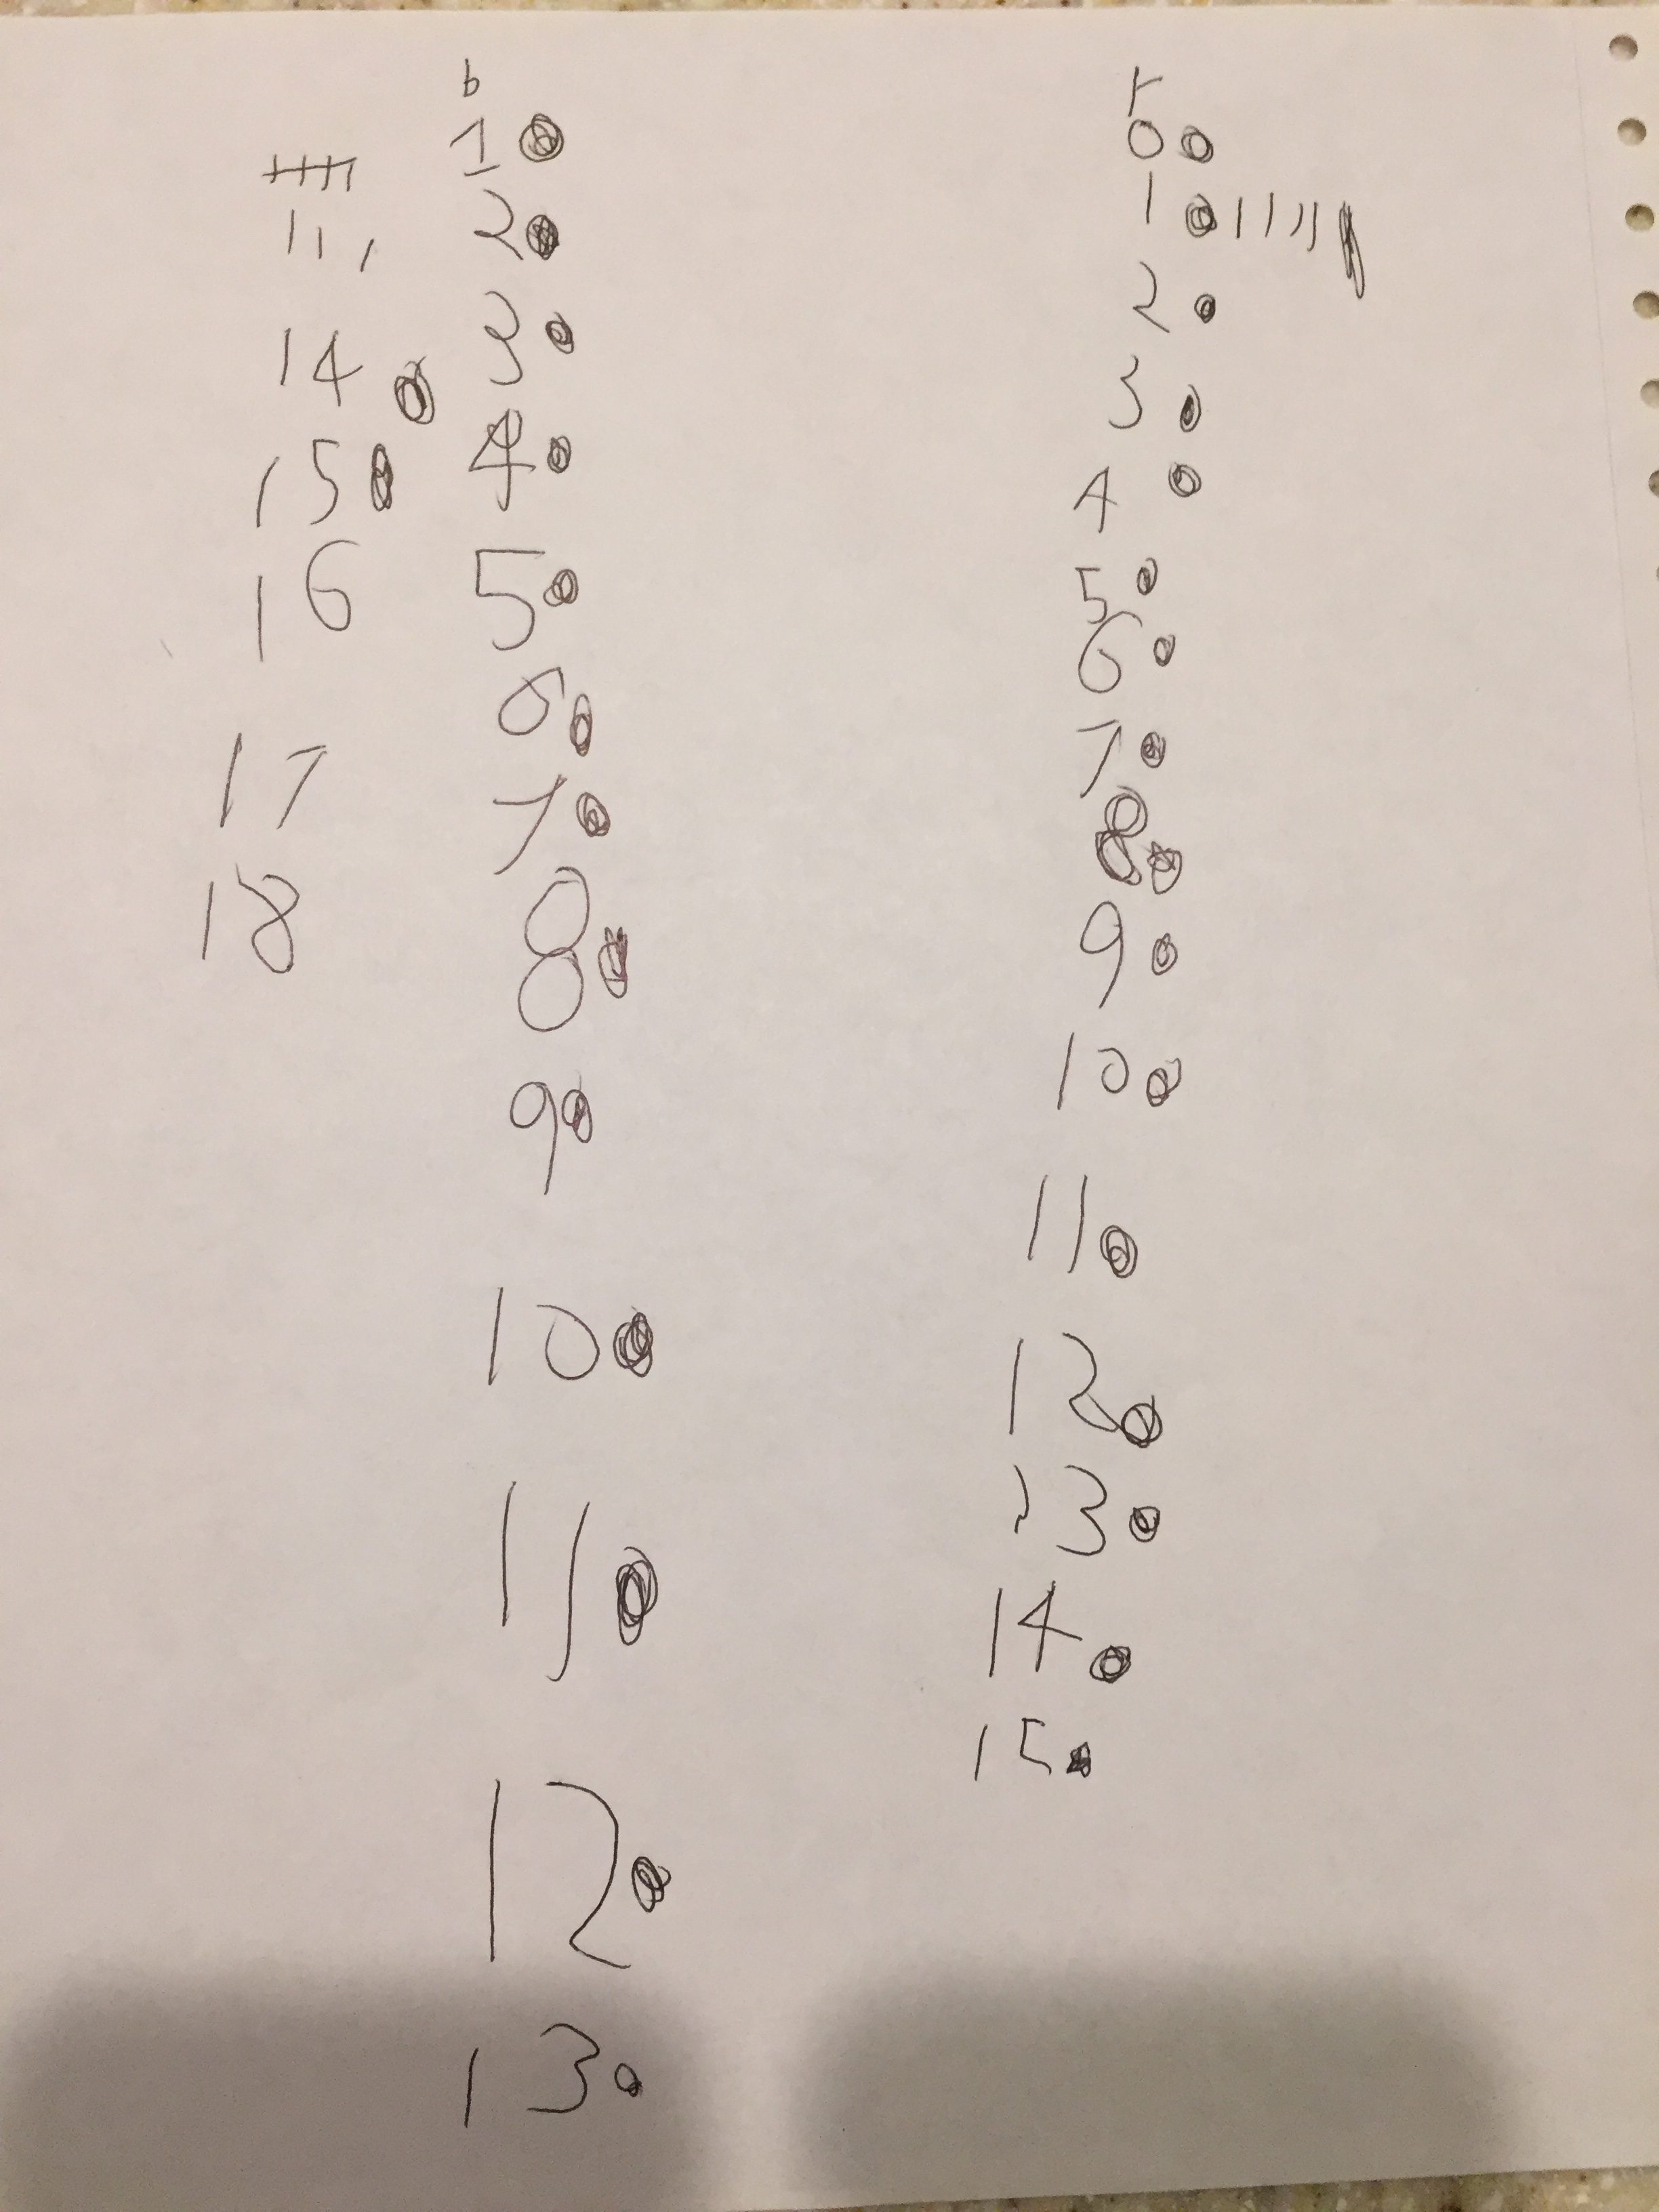 b
1
2
3
4
5
6
7
8
9
10
11
12
13
14
15
16
17
18
r
0
1
2
3
4
5
6
7
8
9
10
11
12
13
14
15